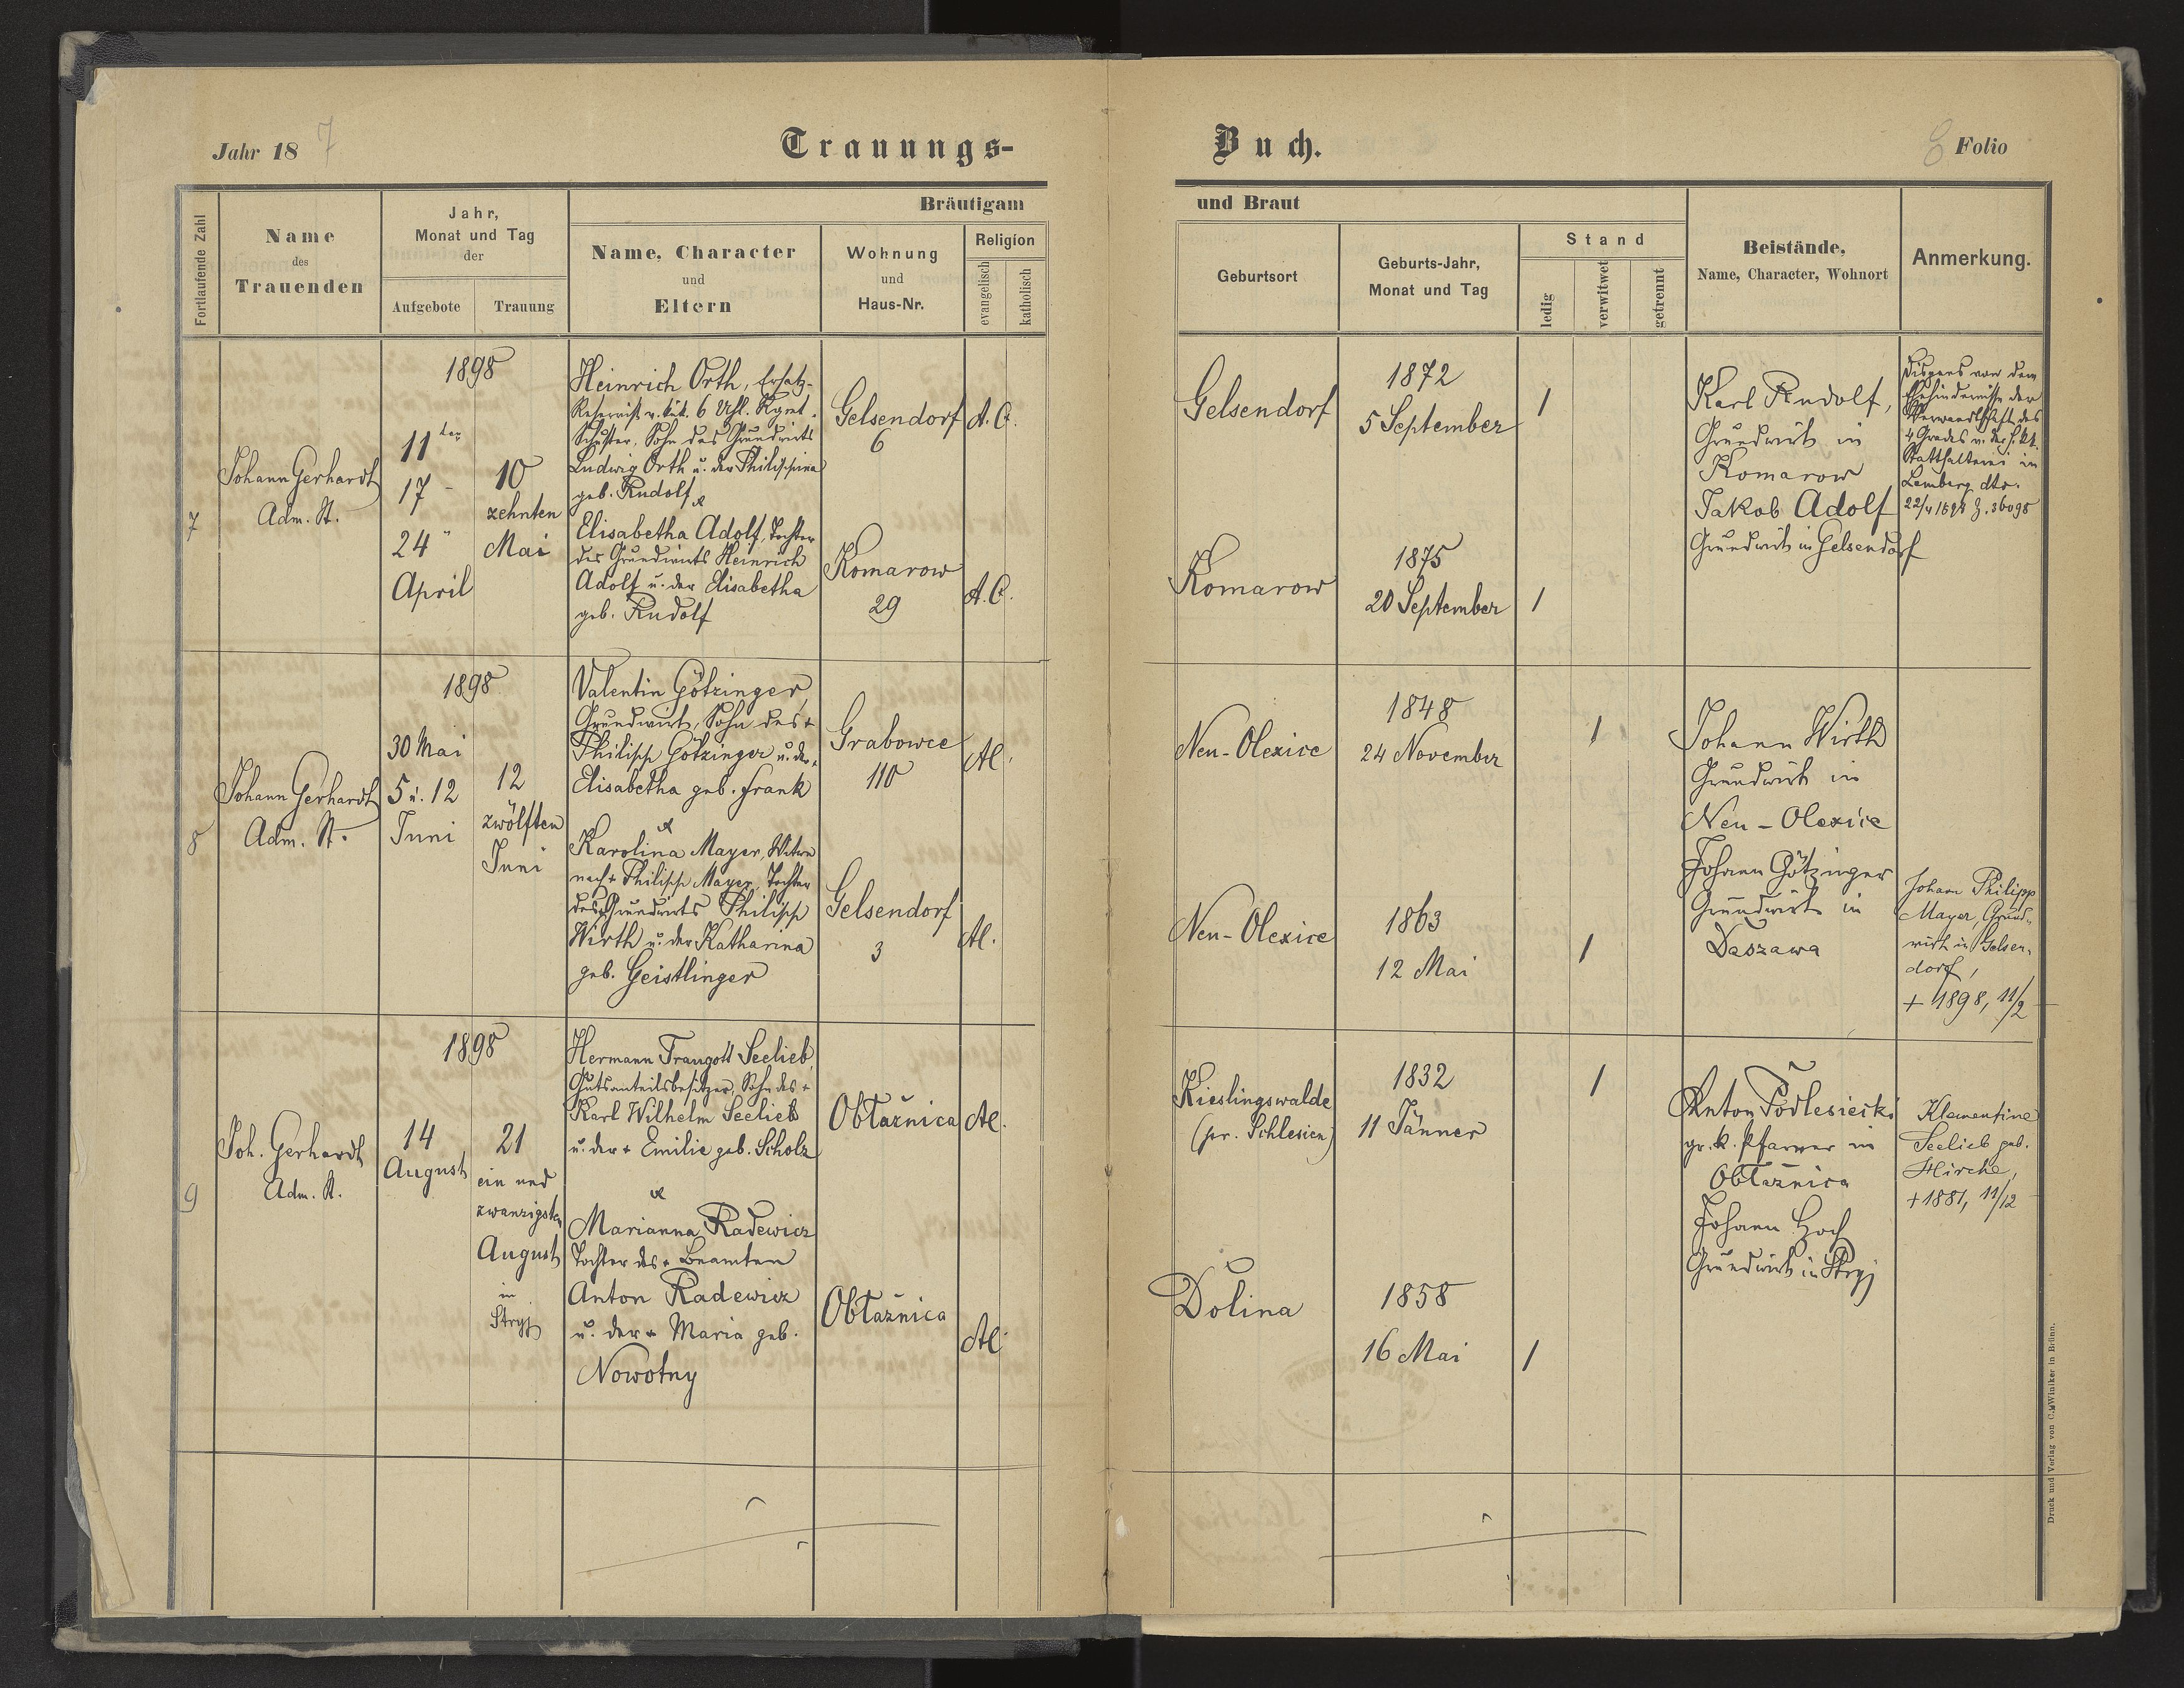 Jahr 18 7
Trauungs-
Fortlaufende Zahl
Name
des
Trauenden
Jahr,
Monat und Tag
der
Aufgebote
Trauung
Bräutigam
Name, Character
und
Eltern
Wohnung
und
Haus-Nr.
Religion
evangelisch
katholisch
7
Johann Gerhardt
Adm. St.
1898
11ten
17 "
24 "
April
10
zehnten
Mai
Heinrich Orth, Ersatz-
Reservist 6 Uhl. Rgmt.
Schuster, Sohn des Grundwirts
Ludwig Orth u. der Philippina
geb. Rudolf
&
Elisabetha Adolf, Tochter
des Grundwirts Heinrich
Adolf u. der Elisabetha
geb. Rudolf
Gelsendorf
6
A. C.
Komarow
29
A. C.
8
Johann Gerhardt
Adm. St.
1898
30 Mai
5 u. 12
Juni
12
zwölften
Juni
Valentin Götzinger,
Grundwirt, Sohn des +
Philipp Götzinger u. der +
Elisabetha geb. Frank
&
Karolina Mayer, Witwe
nach + Philipp Mayer, Tochter
des Grundwirts Philipp
Wirth u. der Katharina
geb. Geistlinger
Grabowce
110
A.
Gelsendorf
3
A.
9
Joh. Gerhardt
Adm. St.
1898
14
August
21
ein und
zwanzigsten
August
in
Stryj
Hermann Traugott Seelieb,
Gutsanteilsbesitzer, Sohn des +
Karl Wilhelm Seelieb
u. der + Emilie geb. Scholz
&
Marianna Radewicz
Tochter des + Beamten
Anton Radewicz
u. der + Maria geb.
Nowotny
Obłaźnica
A.
Obłaźnica
A.
Buch.
8 Folio
und Braut
Geburtsort
Geburts-Jahr,
Monat und Tag
Stand
ledig
verwitwet
getrennt
Beistände,
Name, Character, Wohnort
Anmerkung.
Gelsendorf
1872
5 September
1
Komarow
1875
20 September
1
Karl Rudolf,
Grundwirt in
Komarow
Jakob Adolf
Grundwirt in Gelsendorf
Dispens von dem
Ehehindernisse der
Verwandtschft des
4 Grades v. der h. k.k.
Statthalterei in
Lemberg dto.
22/4 1898 Z. 36098
Neu-Olexice
1848
24 November
1
Neu-Olexice
1863
12 Mai
1
Johann Wirth
Grundwirt in
Neu-Olexice
Johann Götzinger
Grundwirt in
Daszawa
Johann Philipp
Mayer, Grund-
wirt in Gelsen-
dorf,
+ 1898, 11/2
Kieslingswalde
(pr. Schlesien)
1832
11 Jänner
1
Dolina
1858
16 Mai
1
Anton Podlesiecki
gr. k. Pfarrer in
Obłaźnica
Johann Hoch
Grundwirt in Stryj
Klementine
Seelieb geb.
Hirche,
+ 1881, 11/12
Druck und Verlag von C. Winiker in Brünn.